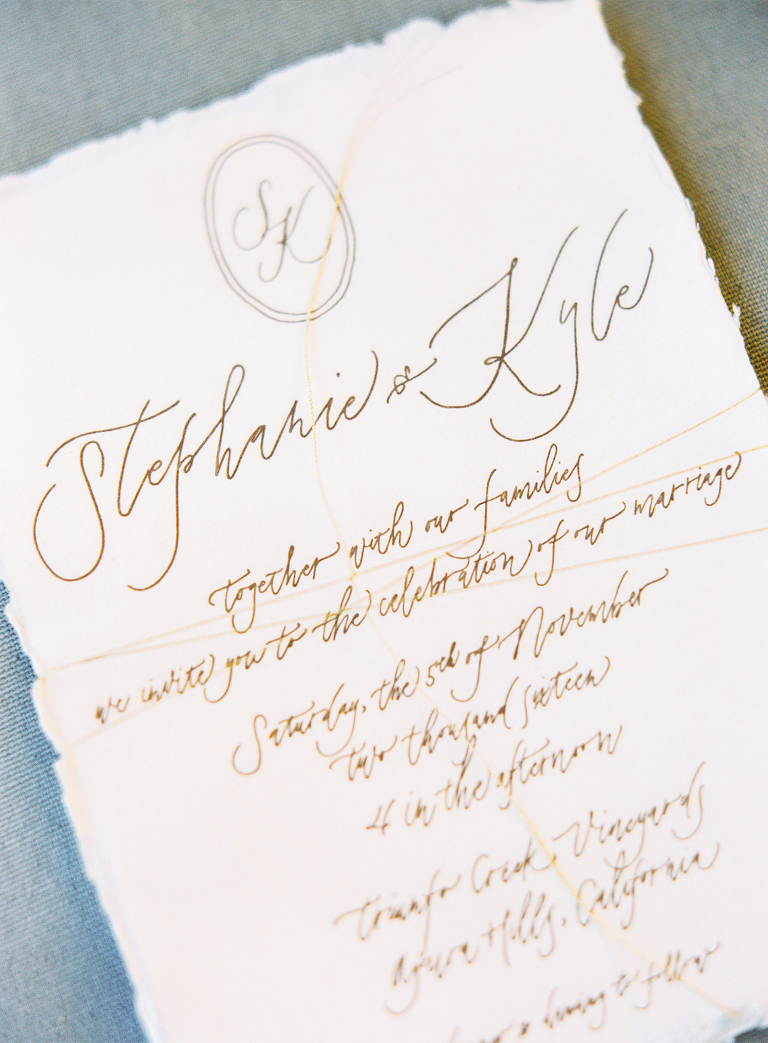 SK
Stephanie & Kyle
together with our families
we invite you to the celebration of our marriage
Saturday, the 5th of November
two thousand sixteen
4 in the afternoon
Triunfo Creek Vineyards
Agoura Hills, California
& dancing to follow